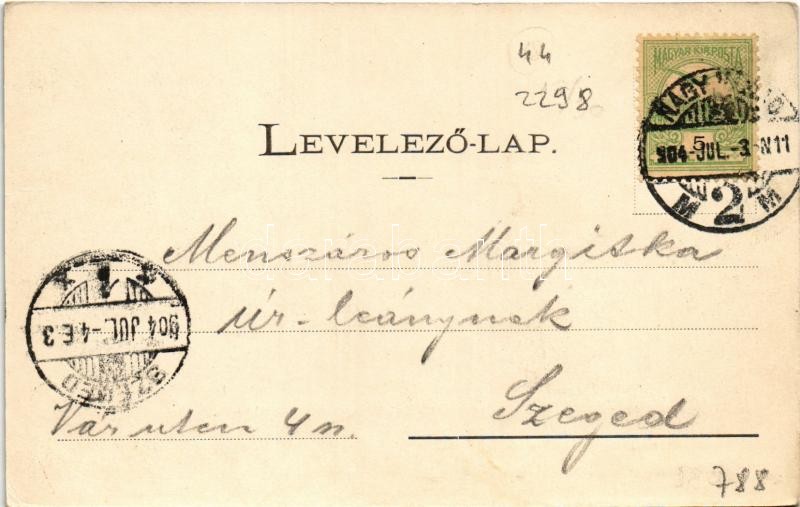 44
2298
MAGYAR KIR. POSTA
5
NAGY
904 JUL.-3 N11
M 2 M
LEVELEZŐ-LAP.
Menszáros Margitka
úr-leánynak
Szeged
Vár utca 4 n.
SZEGED
904 JUL.-4 E 3
1
788